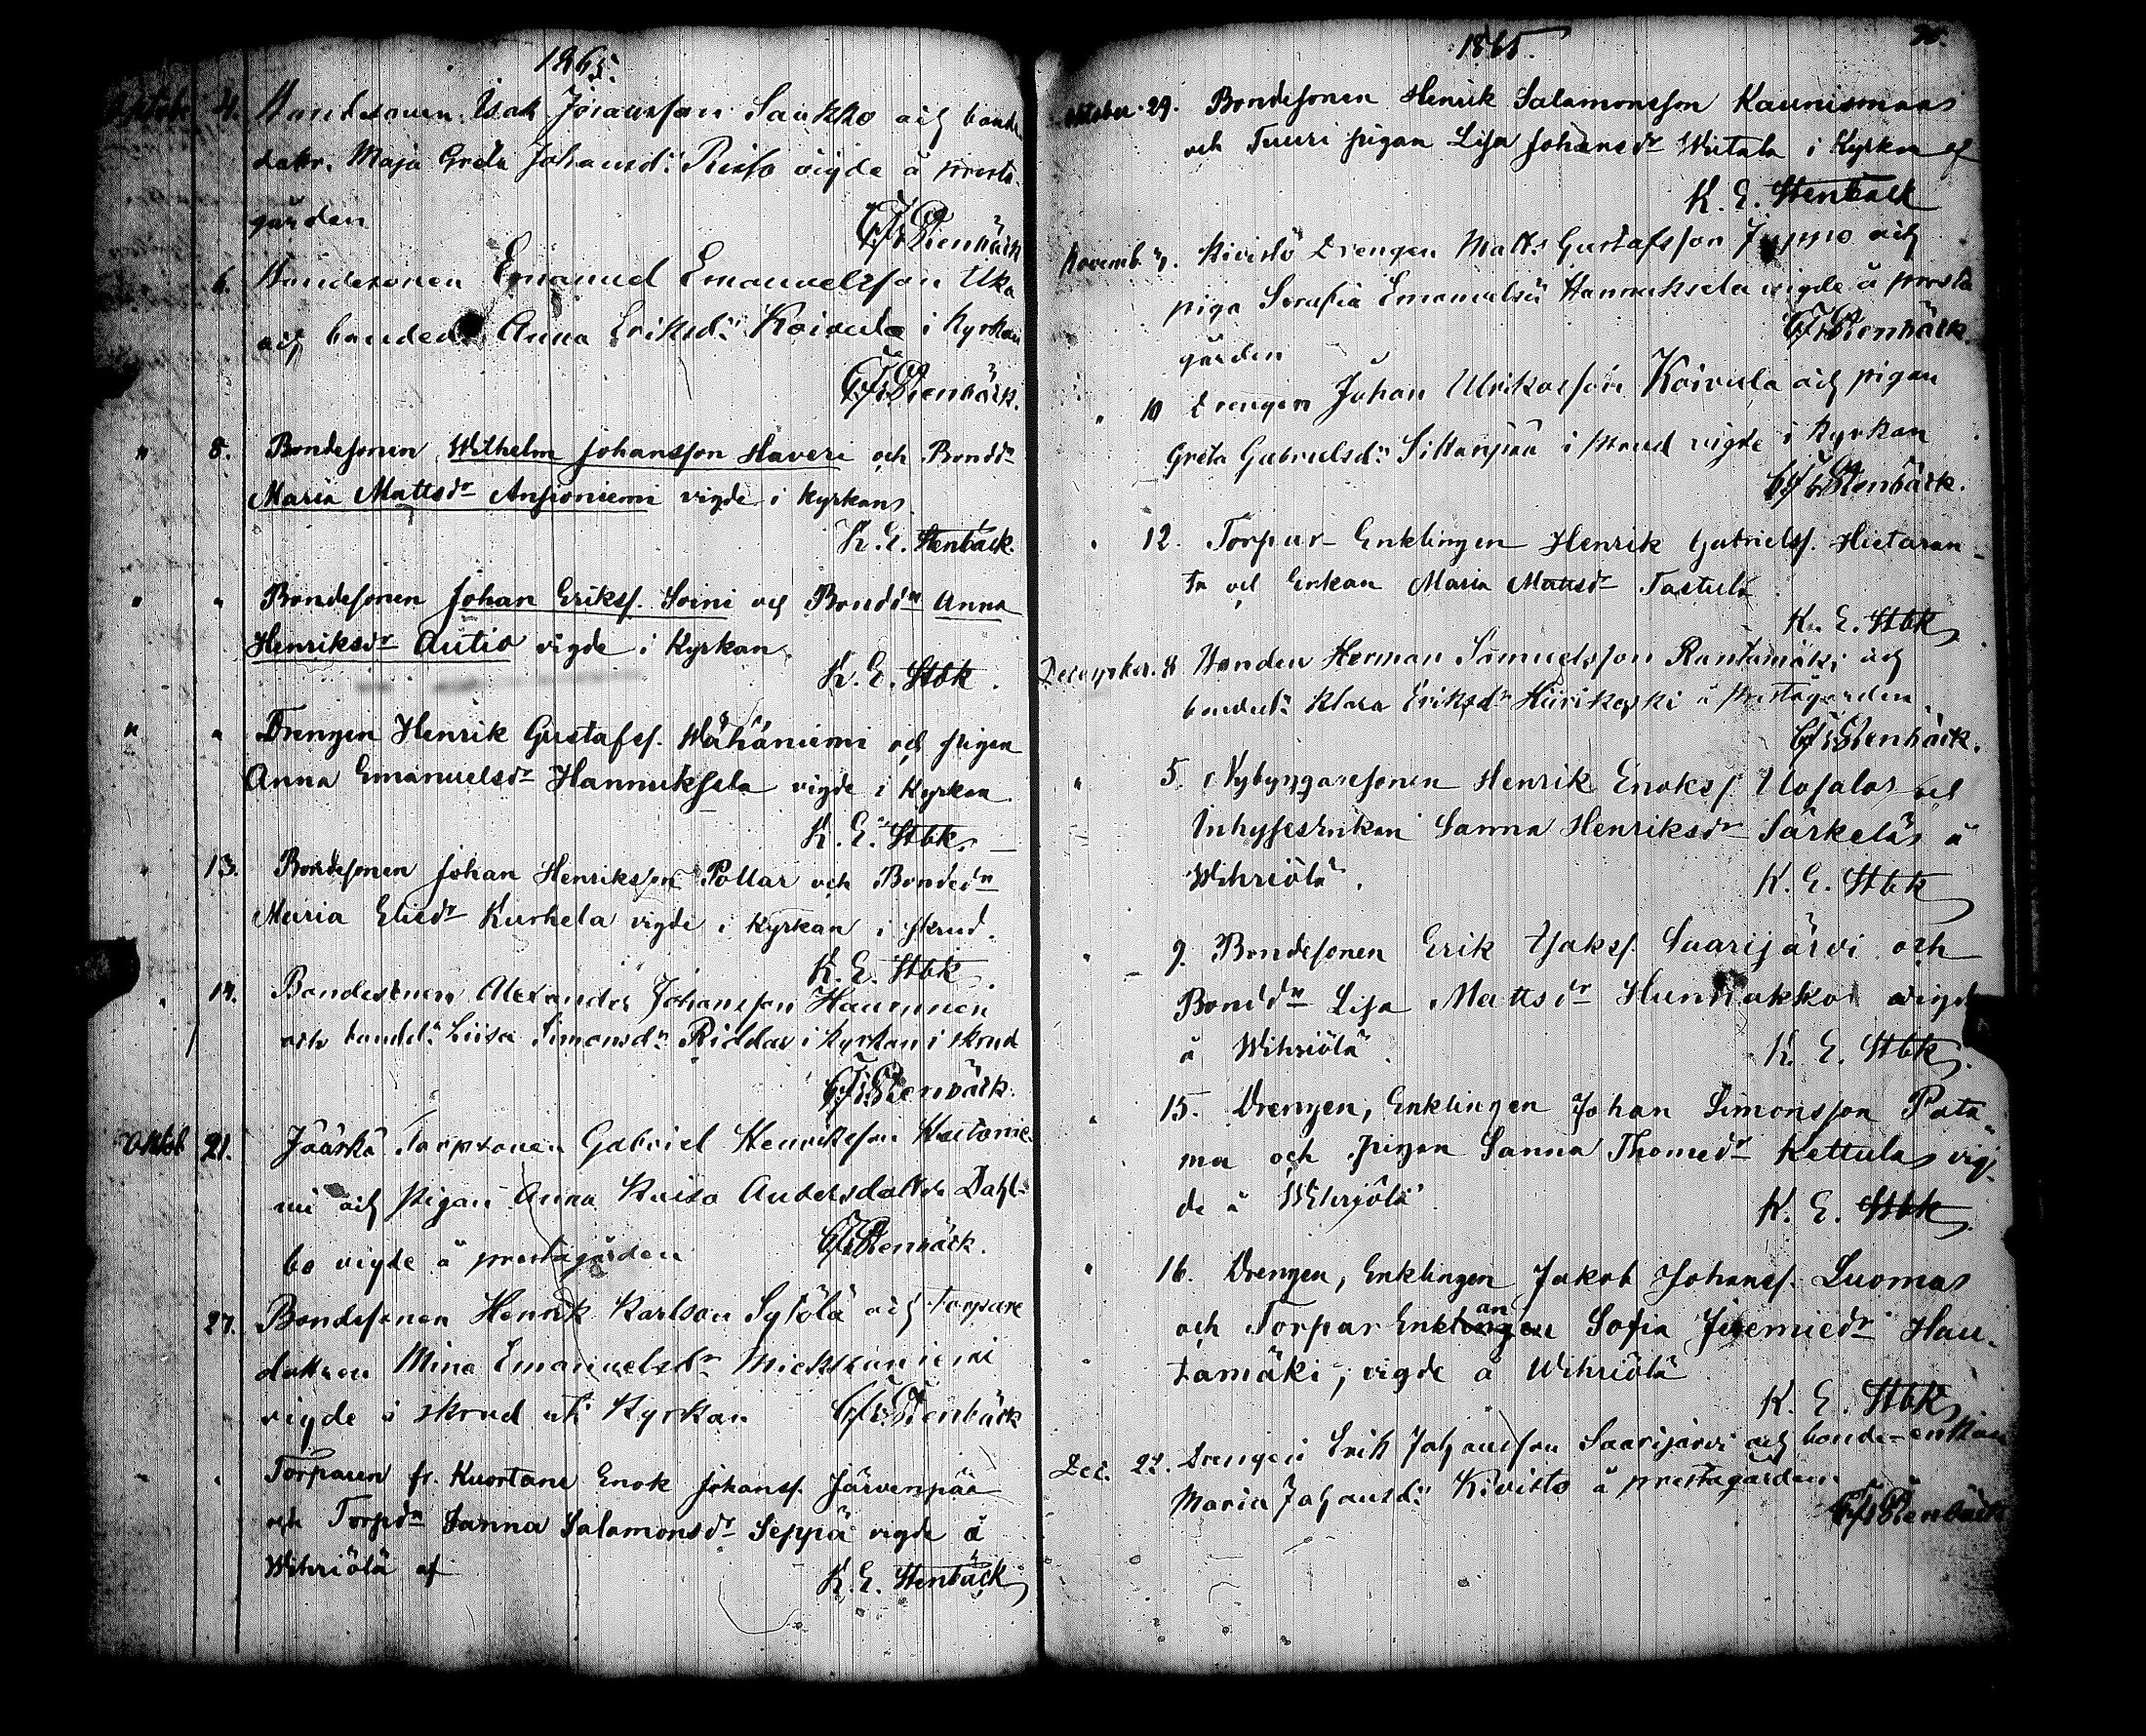 1865.
Oktob. 4. Bondesonen Isak Joransson Saukko och bonde
dottr. Maja Greta Johansdr Risto vigde å presta-
gården
Stenbäck
6. Bondesonen Emanuel Emanuelsson Uka
och bonded. Anna Eriksdr Koivula i kyrkan
Stenbäck.
" 8. Bondesonen Wilhelm Johansson Haveri och Bondd:n
Maria Mattsdr Anssoniemi vigde i kyrkan
K. E. Stenbäck.
" " Bondesonen Johan Eriksf. Soini och Bondd:n Anna
Henriksdr Autio vigde i Kyrkan.
K. E. Stbk.
" " Drengen Henrik Gustafsf. Wähäniemi och pigan
Anna Emanuelsdr Hannuksela vigde i Kyrkan
K. E. Stbk.
" 13. Bondesonen Johan Henriksson Pollar och Bonded:n
Maria Eliedr Kurhela vigde i kyrkan i skrud.
K. E. Stbk.
" 14. Bondesonen Alexander Johansson
och bondd:n Liisa Simonsdr Riddar i kyrkan i skrud
Stenbäck.
Oktob 21. Jääskä Torpsonen Gabriel Henriksson Kautonie-
mi och Pigan Anna Kaisa Andersdotter Dahl-
bo vigde å prestagården
Stenbäck.
27. Bondesonen Henrik Karlsson Sytölä och Torpare
dottren Mina Emanuelsdr
vigde i skrud uti Kyrkan
Stenbäck
" " Torparen fr. Kuortane Enok Johansf. Järvenpää
och Torpd:n Sanna Salamonsdr Seppä vigde å
Wihriölä af
K. E. Stenbäck
1865.
30.
Oktober 29. Bondesonen Henrik Salamonsson Kaunismaa
och Tuuri pigan Lisa Johansdr Wirtala i Kyrkan af
K. E. Stenbäck
Novemb. Kivistö Drengen Matts Gustafsson Juppo och
piga Serafia Emanuelsdr Hannuksela vigde å presta
gården
Stenbäck.
" 10 Drengen Johan Ulrikasson Koivula och pigan
Greta Gabrielsdr Sillanpää i skrud vigde i kyrkan
Stenbäck.
" 12. Torpar-Enklingen Henrik Gabrielsf. Hietaran-
ta och Enkan Maria Mattsdr Tastula
K. E. Stbk
December. 8 Bonden Herman Samuelsson Rantamäki och
bonded:n Klara Eriksdr Hiirikoski å Prestagården
Stenbäck.
" 5. Nybyggaresonen Henrik Enoksf Uofalas och
Inhyses enkan Sanna Henriksdr Särkelä å
Wihriölä.
K. E. Stbk
" 9. Bondesonen Erik Isaksf. Saarijärvi och
Bondd:n Lisa Mattsdr Hunnakko vigde
å Wihriölä.
K. E. Stbk.
" 15. Drengen, Enklingen Johan Simonsson Pata-
ma och pigan Sanna Thomedr Kettula vig-
de å Wihriölä
K. E. Stbk
" 16. Drengen, Enklingen Jakob Johansf. Luoma
och Torpar Enklingen an Sofia Jeremiedr Hau-
tamäki, vigde å Wihriölä
K. E. Stbk
Dec. 22. Drengen Erik Johansson Saarijärvi och bonde-enkan
Maria Johansdr Kivisto å prestagården.
Stenbäck